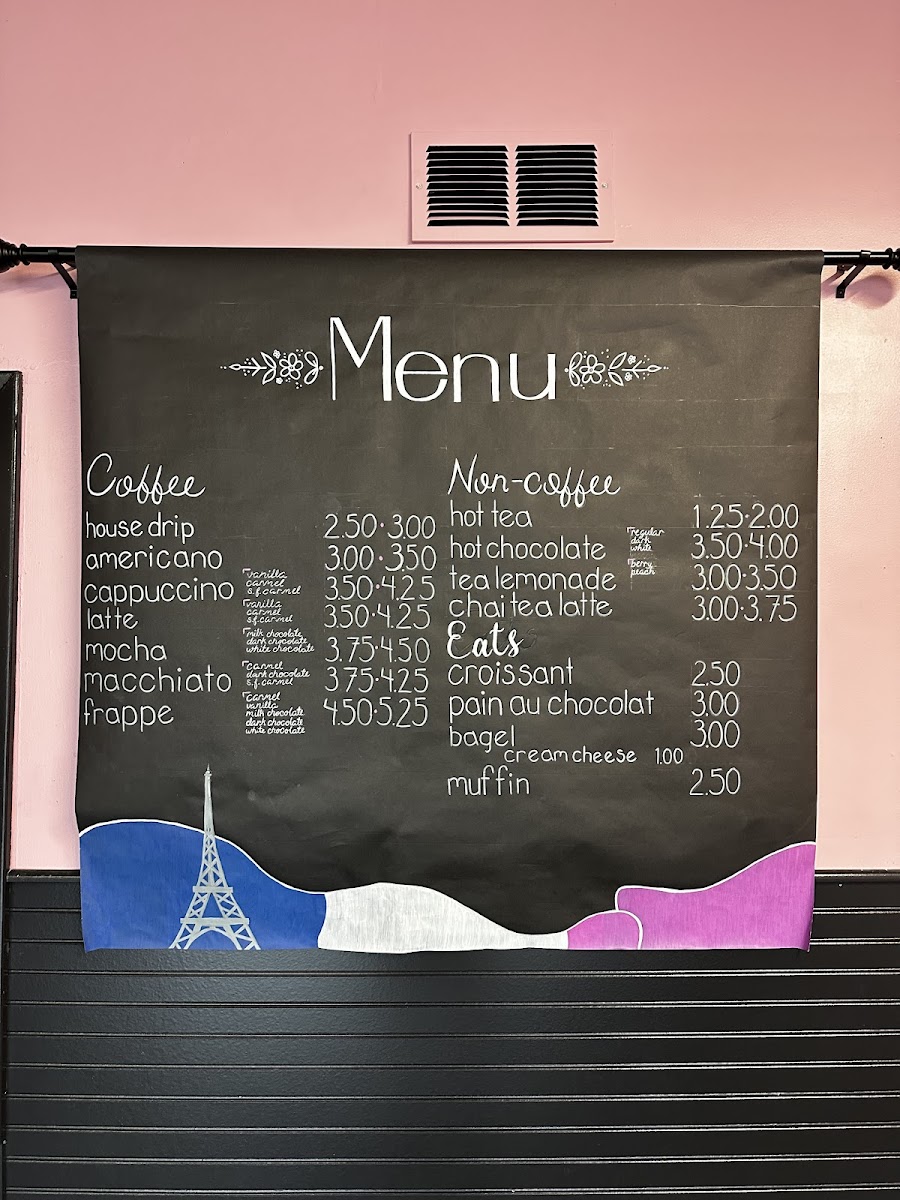 Menu
Coffee
house drip 2.50·3.00
americano 3.00·3.50
cappuccino vanilla carmel s.f. carmel 3.50·4.25
latte vanilla carmel s.f. carmel 3.50·4.25
mocha milk chocolate dark chocolate white chocolate 3.75·4.50
macchiato carmel dark chocolate s.f. carmel 3.75·4.25
frappe carmel vanilla milk chocolate dark chocolate white chocolate 4.50·5.25
Non-coffee
hot tea 1.25·2.00
hot chocolate regular dark white 3.50·4.00
tea lemonade berry peach 3.00·3.50
chai tea latte 3.00·3.75
Eats
croissant 2.50
pain au chocolat 3.00
bagel 3.00
cream cheese 1.00
muffin 2.50